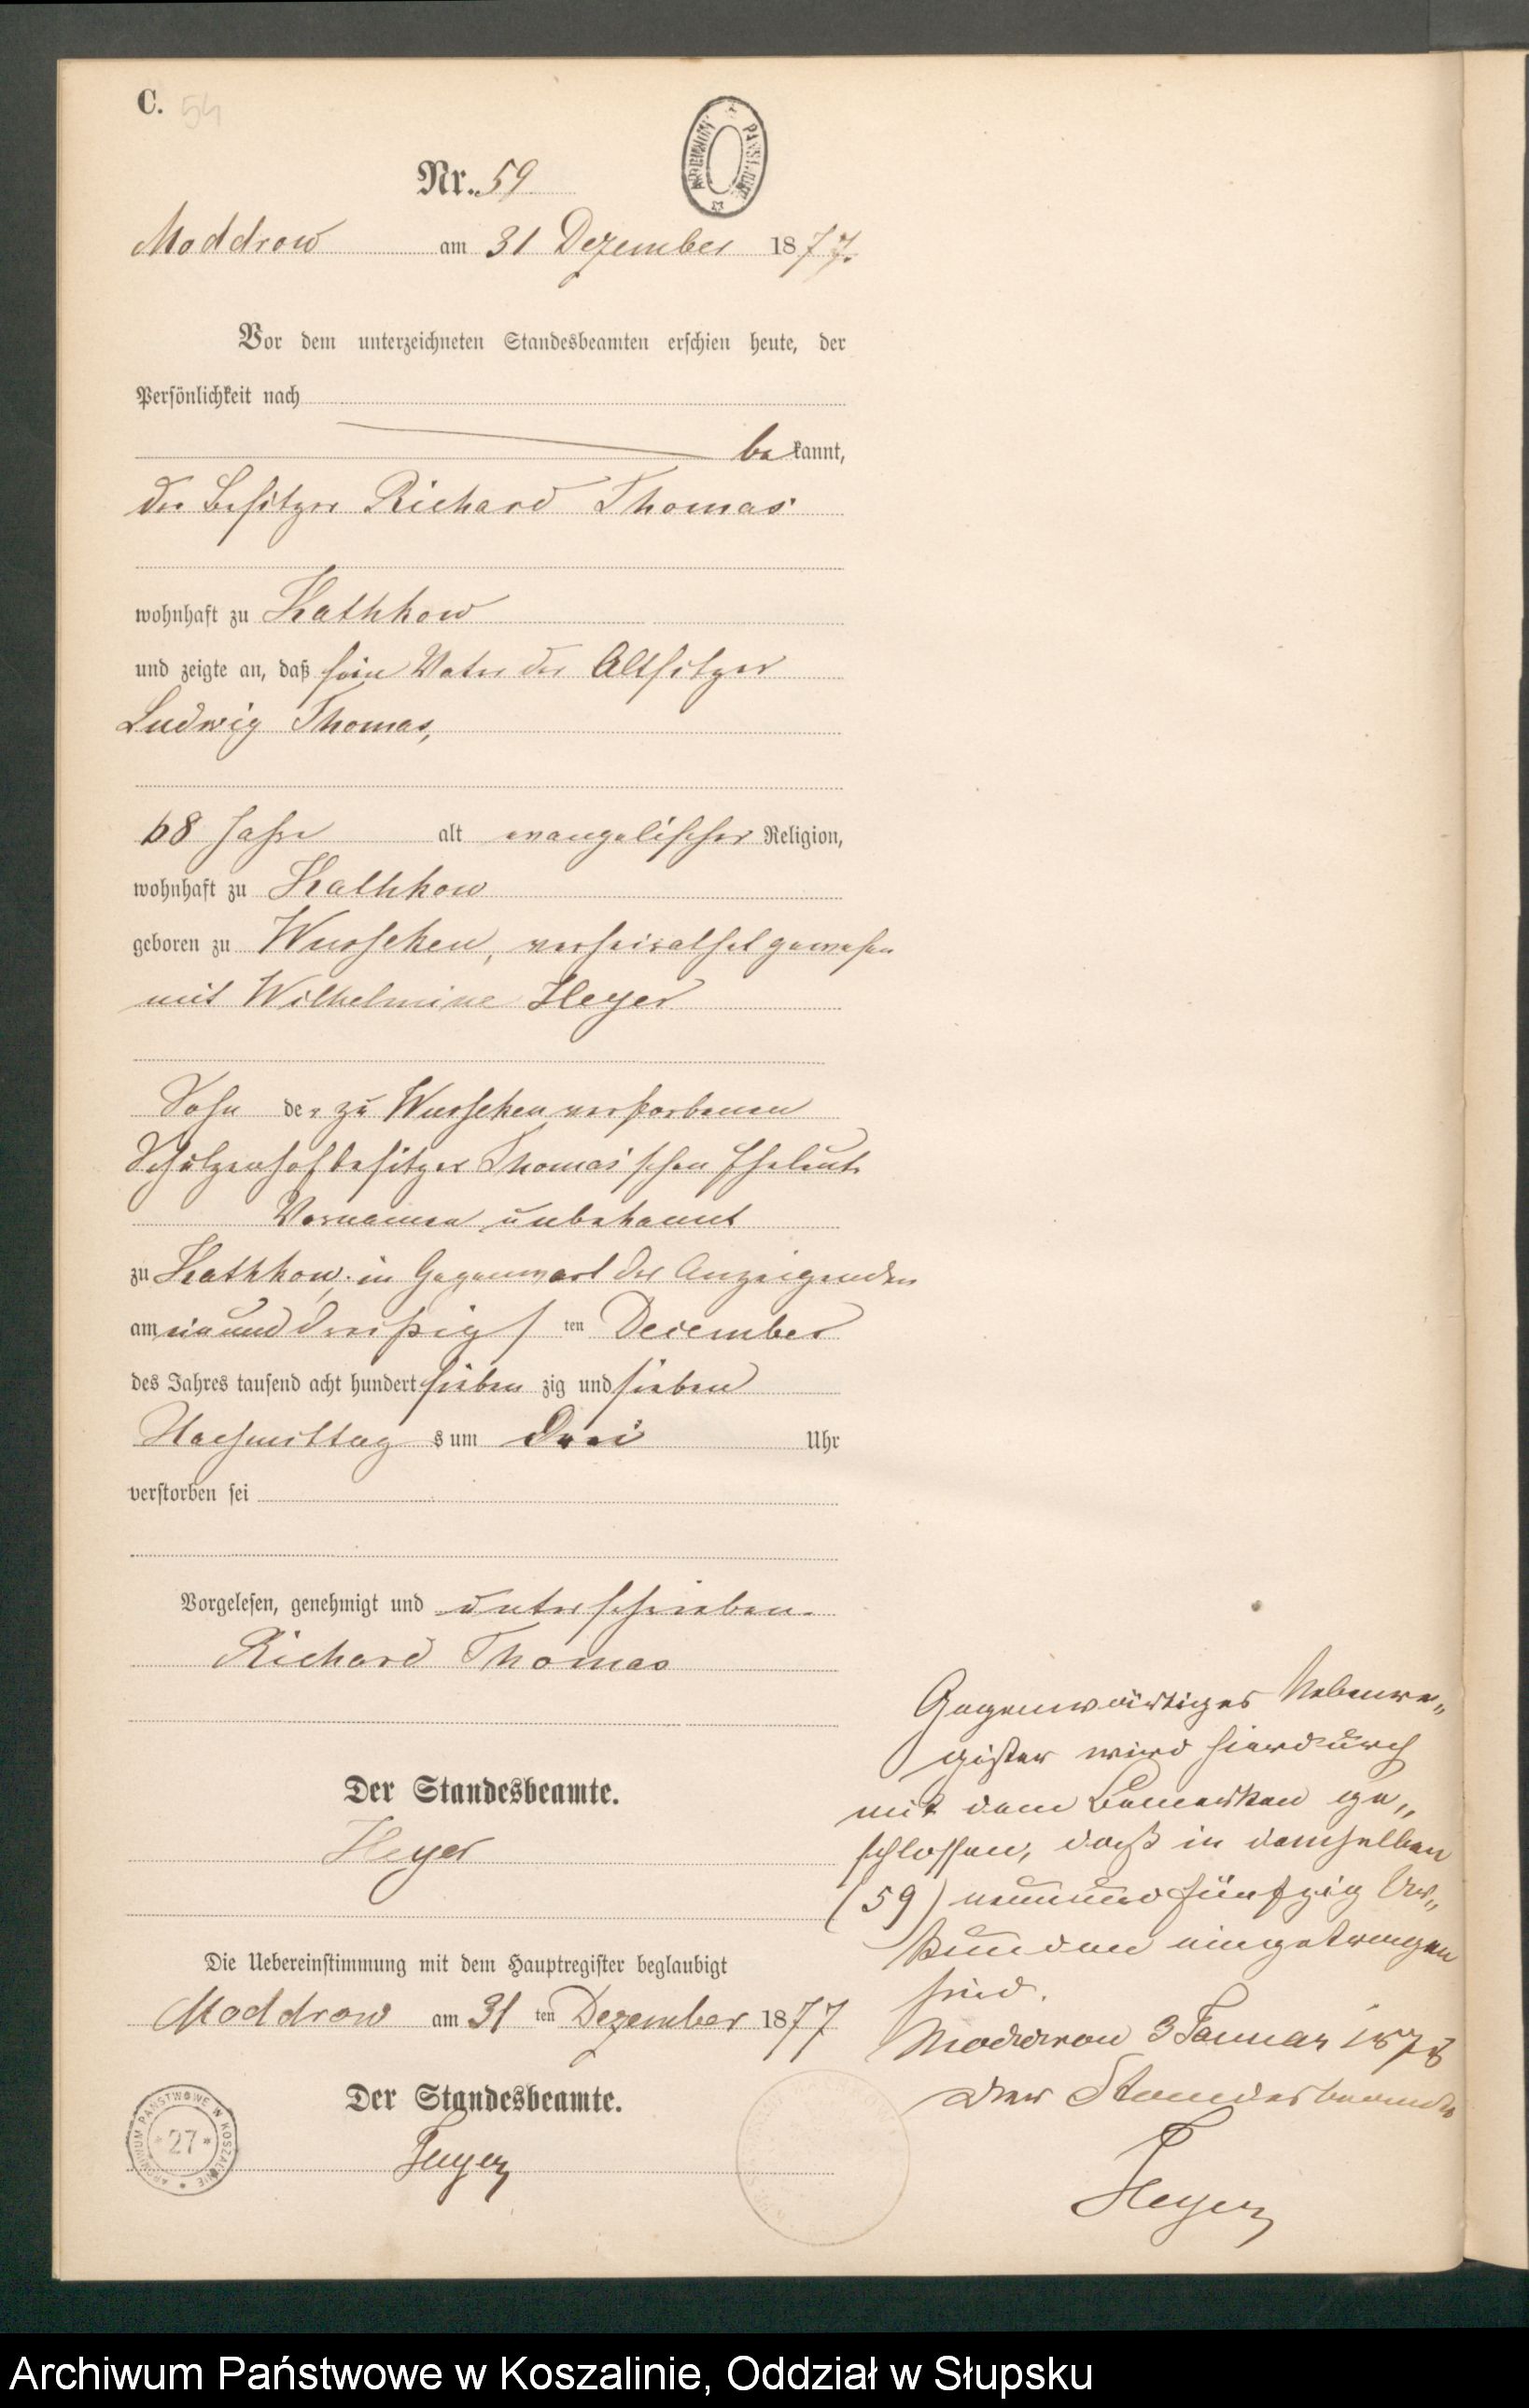 C. 54
ARCHIWUM PAŃSTWOWE
Nr. 59
Moddrow am 31 Dezember 1877.
Vor dem unterzeichneten Standesbeamten erschien heute, der
Persönlichkeit nach
be kannt,
der Besitzer Richard Thomas
wohnhaft zu Kathkow
und zeigte an, daß sein Vater der Altsitzer
Ludwig Thomas,
68 Jahre alt evangelischer Religion,
wohnhaft zu Kathkow
geboren zu Wusseken, verheirathet gewesen
mit Wilhelmine Heyer
Sohn der zu Wusseken verstorbenen
Schulzenhofbesitzer Thomas'schen Eheleute
Vornamen unbekannt
zu Kathkow, in Gegenwart des Anzeigenden
am einunddreißig ten December
des Jahres tausend acht hundert sieben zig und sieben
Nachmittag s um drei Uhr
verstorben sei
Vorgelesen, genehmigt und unterschrieben.
Richard Thomas
Der Standesbeamte.
Heyer
Die Uebereinstimmung mit dem Hauptregister beglaubigt
Moddrow am 31 ten Dezember 1877
Der Standesbeamte.
Heyer
ARCHIWUM PAŃSTWOWE W KOSZALINIE
* 27 *
Gegenwärtiges Nebenre„
gister wird hierdurch
mit dem Bemerken ge„
schlossen, daß in demselben
(59) neunundfünfzig Ur„
kunden eingetragen
sind.
Moddrow 3 Januar 1878
Der Standesbeamte
Heyer
Archiwum Państwowe w Koszalinie, Oddział w Słupsku